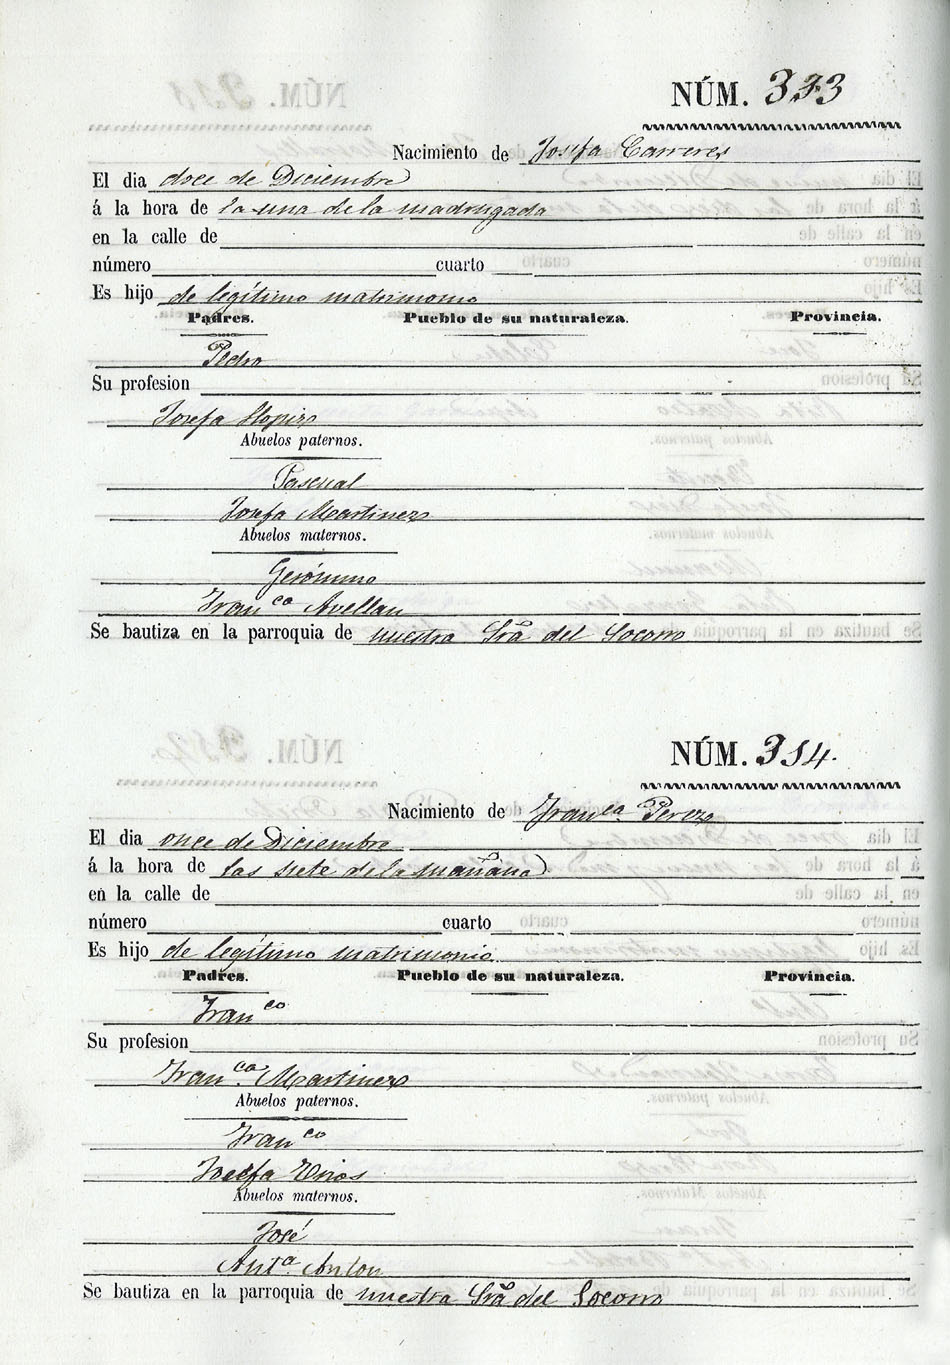 NÚM. 333
Nacimiento de Josefa Carreres
El dia doce de Diciembre
á la hora de la una de la madrugada
en la calle de
número cuarto
Es hijo de legítimo matrimonio
Padres. Pueblo de su naturaleza. Provincia.
Pedro
Su profesion
Josefa Llopis
Abuelos paternos.
Pascual
Josefa Martinez
Abuelos maternos.
Gerónimo
Franco Avellan
Se bautiza en la parroquia de nuestra Sra del Socorro
NÚM. 334.
Nacimiento de Franca Perez
El dia once de Diciembre
á la hora de las siete de la mañana
en la calle de
número cuarto
Es hijo de legítimo matrimonio
Padres. Pueblo de su naturaleza. Provincia.
Franco
Su profesion
Franca. Martinez
Abuelos paternos.
Franco
Josefa
Abuelos maternos.
José
Anta. Anton
Se bautiza en la parroquia de nuestra Sra del Socorro